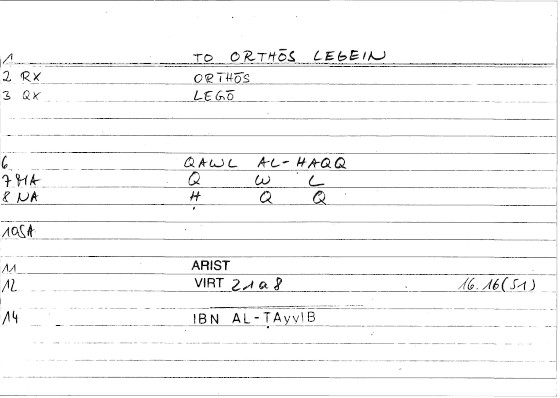 1 TO ORTHŌS LEGEIN
2 RX ORTHŌS
3 QX LEGŌ
6 QAWL AL-ḤAQQ
7 MA Q W L
8 NA Ḥ Q Q
10SA
11 ARIST
12 VIRT 21a8 16.16(S1)
14 IBN AL-ṬAyyIB